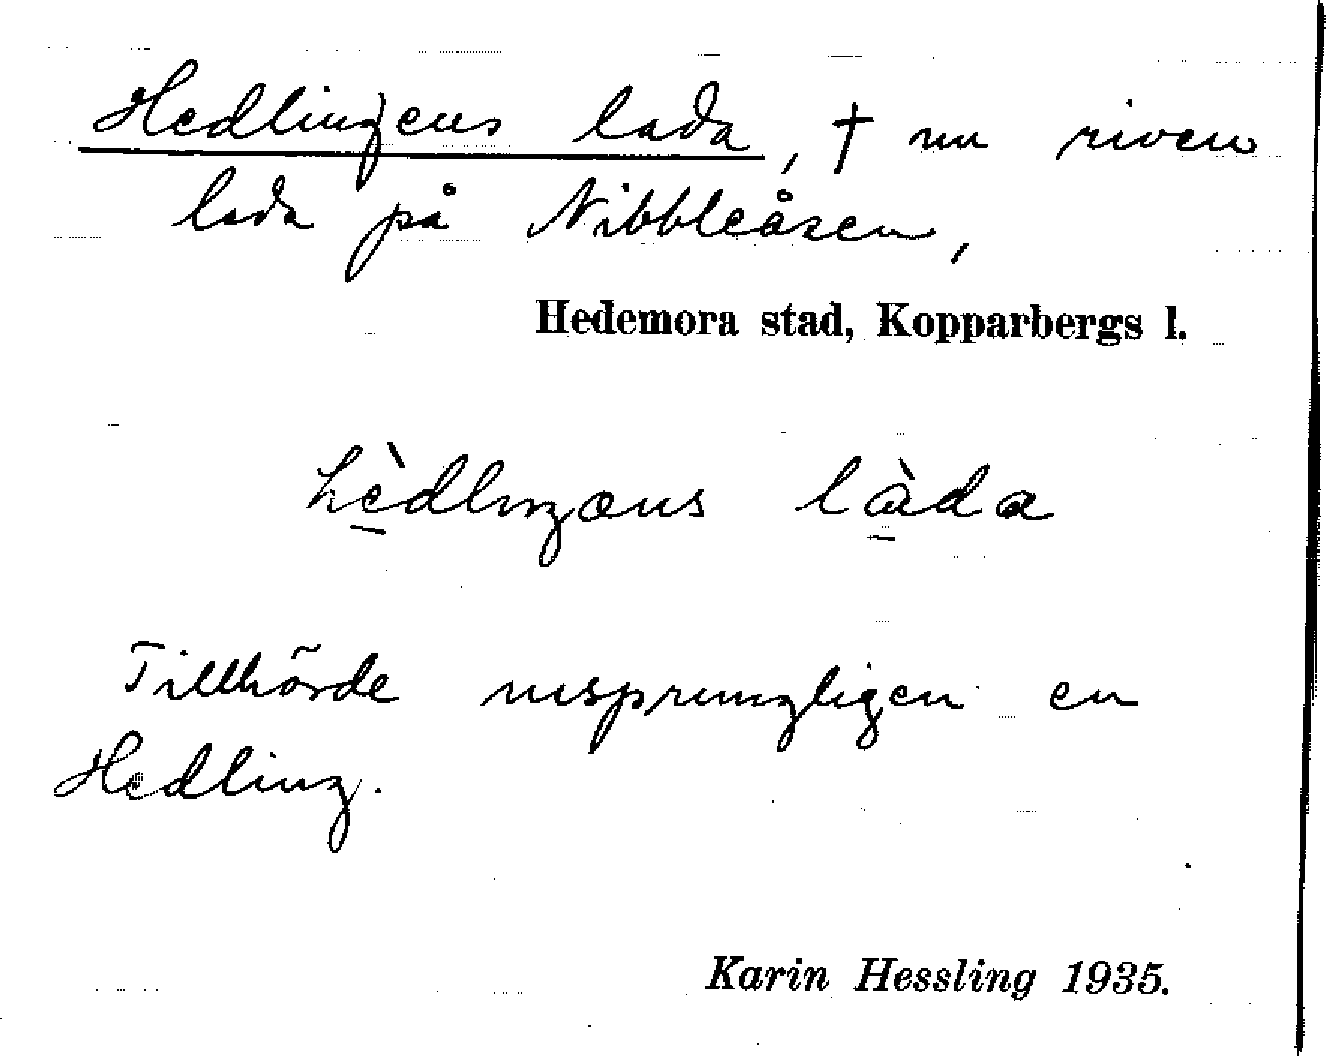 Hedlingens lada, † nu riven
lada på Nibbleåsen,
Hedemora stad, Kopparbergs l.
hèdlıŋəns làda
Tillhörde ursprungligen en
Hedling.
Karin Hessling 1935.